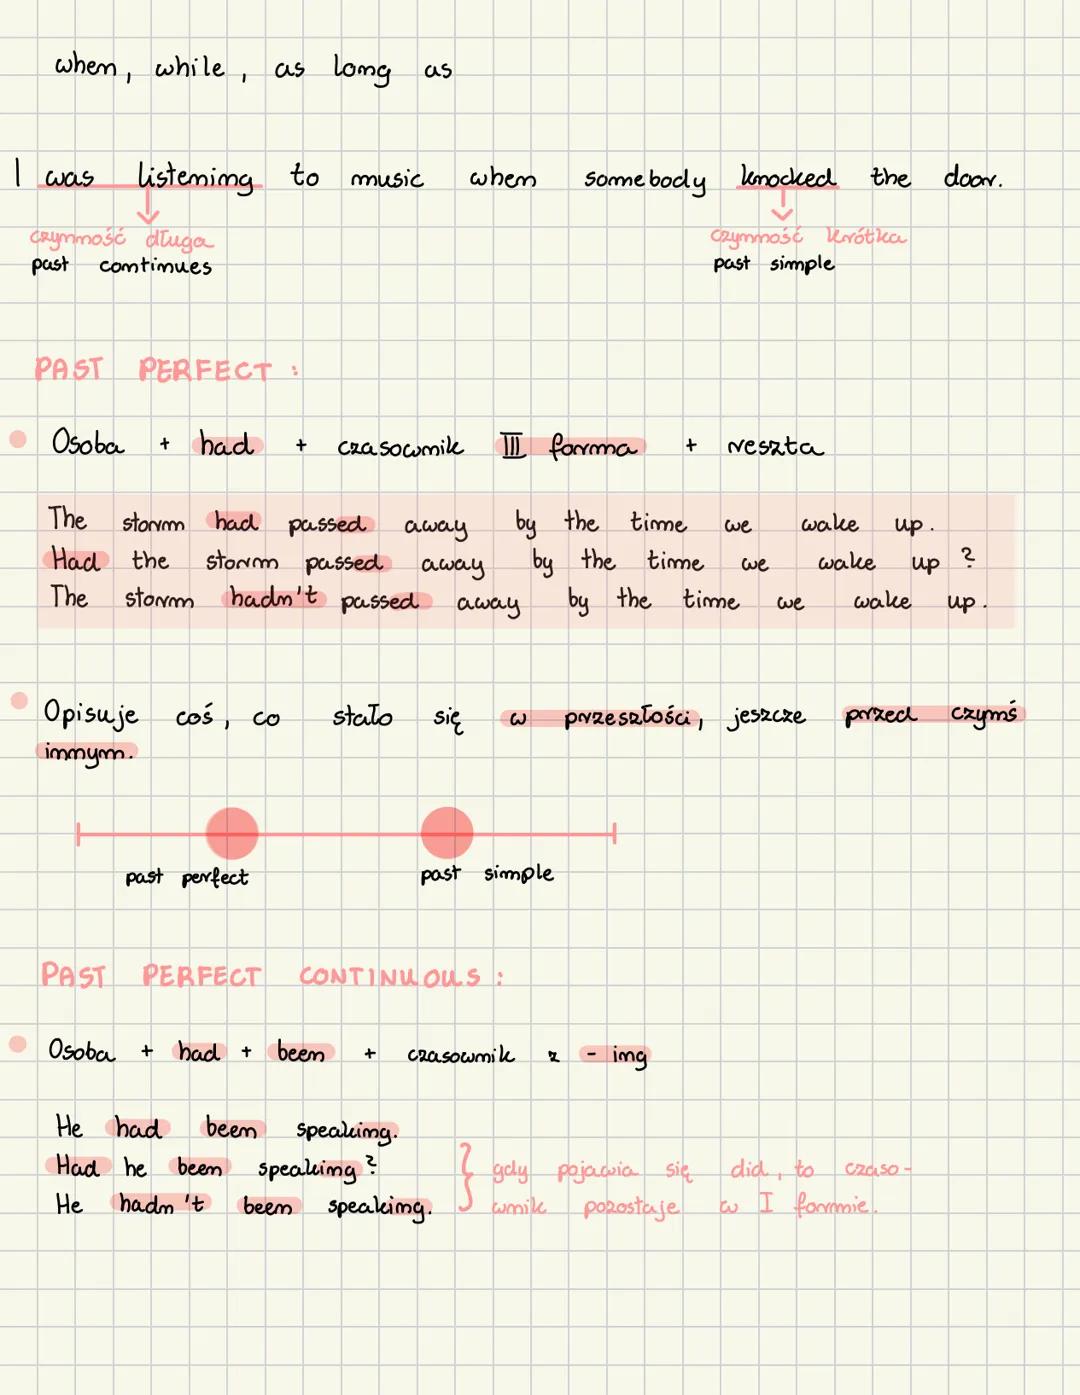 when, while, as long as
I was listening to music when somebody knocked the door.
czynność długa czynność krótka
past continues past simple
PAST PERFECT:
Osoba + had + czasownik III forma + reszta
The storm had passed away by the time we wake up.
Had the storm passed away by the time we wake up?
The storm hadn't passed away by the time we wake up.
Opisuje coś, co stało się w przeszłości, jeszcze przed czymś
innym.
past perfect past simple
PAST PERFECT CONTINUOUS:
Osoba + had + been + czasownik z - ing
He had been speaking.
Had he been speaking? gdy pojawia się did, to czaso-
He hadn't been speaking. wnik pozostaje w I formie.